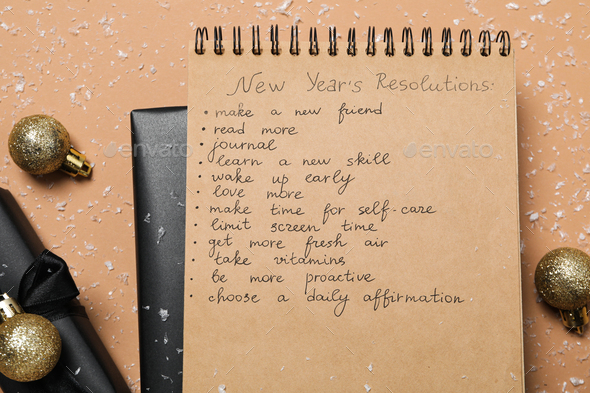 New Year's Resolutions:
• make a new friend
• read more
• journal
• learn a new skill
• wake up early
• love more
• make time for self-care
• limit screen time
• get more fresh air
• take vitamins
• be more proactive
• choose a daily affirmation
envato
envato
envato